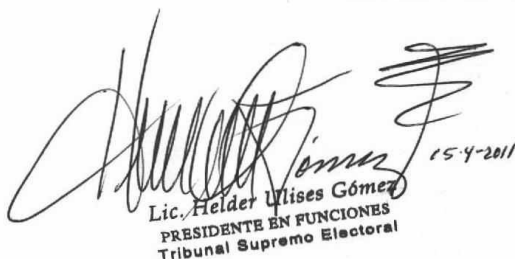 Gómez
15-4-2011
Lic. Helder Ulises Gómez
PRESIDENTE EN FUNCIONES
Tribunal Supremo Electoral